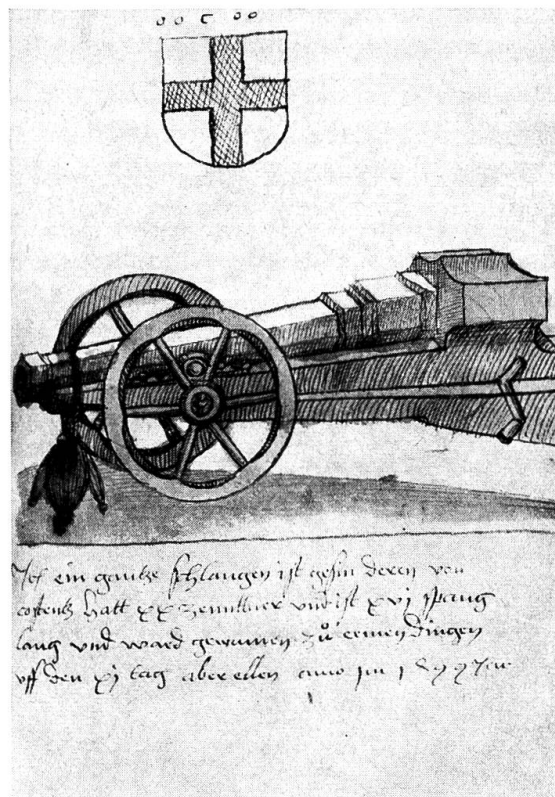 o o C o o
Jtͥ ein gantze schlangen ist gesin deren von
costentz hatt xx zenttner und ist xvj spang
lang und ward gewunnen zů ermendingen
uff den xj tag aberellen anno im 1499 Jar